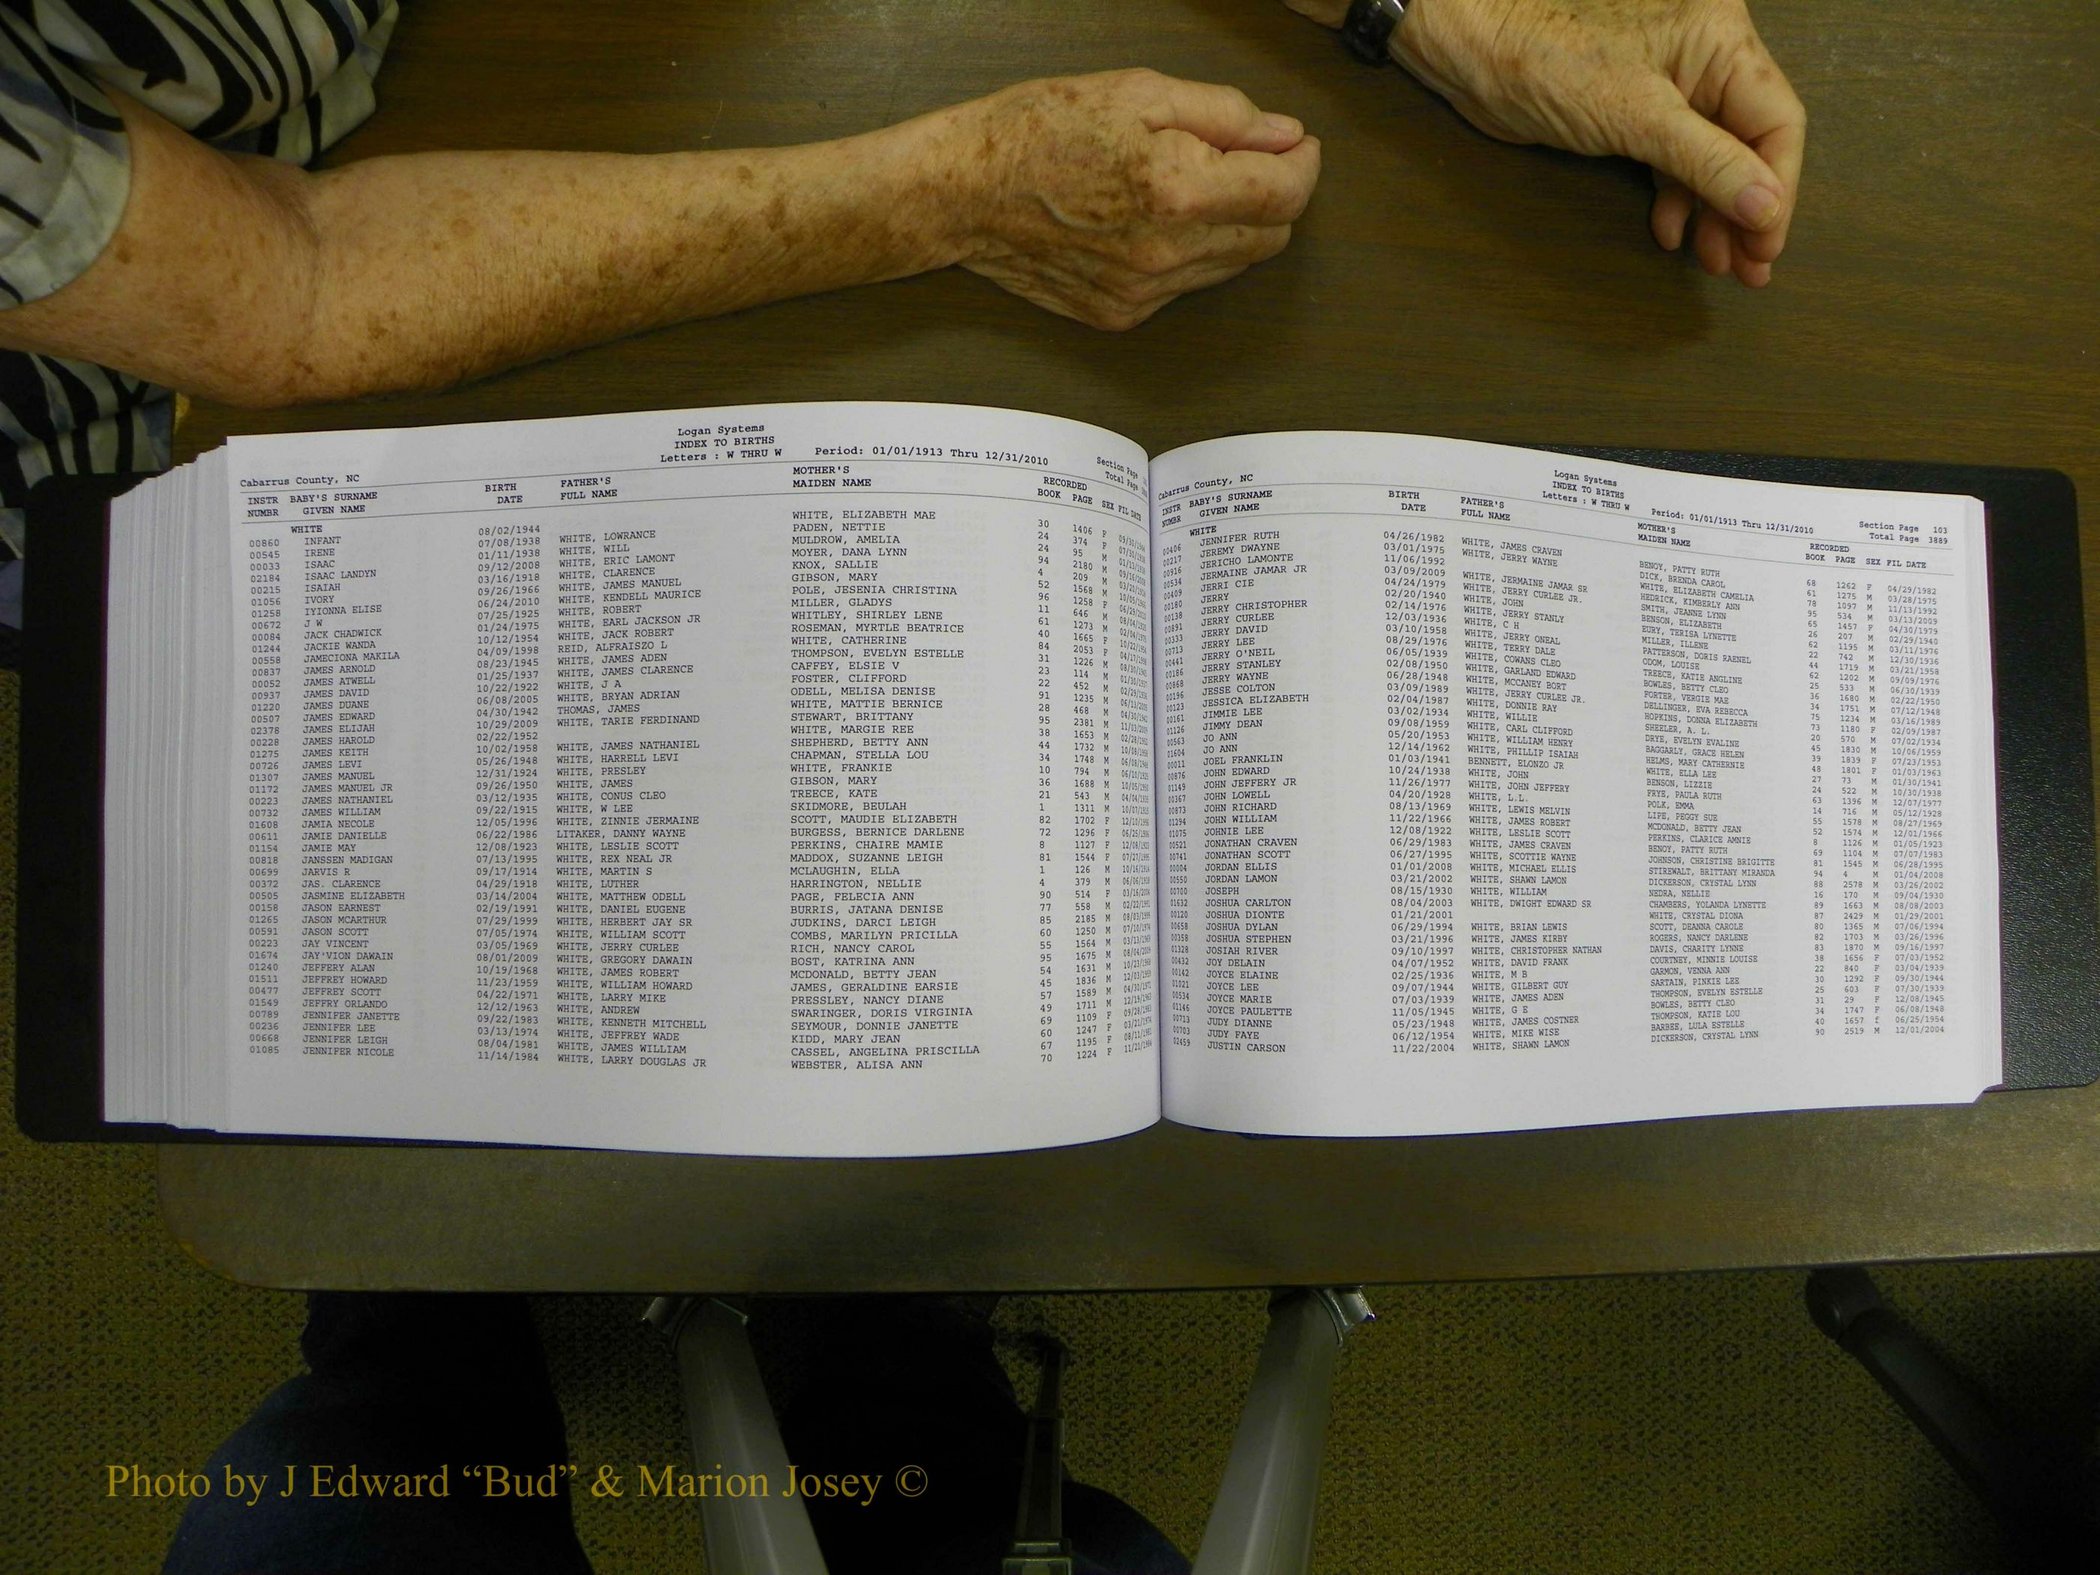 Logan Systems
INDEX TO BIRTHS
Letters : W THRU W Period: 01/01/1913 Thru 12/31/2010
Cabarrus County, NC Section Page
Total Page
INSTR BABY'S SURNAME BIRTH FATHER'S MOTHER'S RECORDED
NUMBR GIVEN NAME DATE FULL NAME MAIDEN NAME BOOK PAGE SEX FIL DATE
WHITE
00860 INFANT 08/02/1944 WHITE, ELIZABETH MAE 30 1406 F
00545 IRENE 07/08/1938 WHITE, LOWRANCE PADEN, NETTIE 24 374 F
00033 ISAAC 01/11/1938 WHITE, WILL MULDROW, AMELIA 24 95 M
02184 ISAAC LANDYN 09/12/2008 WHITE, ERIC LAMONT MOYER, DANA LYNN 94 2180 M
00215 ISAIAH 03/16/1918 WHITE, CLARENCE KNOX, SALLIE 4 209 M
01056 IVORY 09/26/1966 WHITE, JAMES MANUEL GIBSON, MARY 52 1568 M
01258 IYIONNA ELISE 06/24/2010 WHITE, KENDELL MAURICE POLE, JESENIA CHRISTINA 96 1258 F
00672 J W 07/25/1925 WHITE, ROBERT MILLER, GLADYS 11 646 M
00084 JACK CHADWICK 01/24/1975 WHITE, EARL JACKSON JR WHITLEY, SHIRLEY LENE 61 1273 M
01244 JACKIE WANDA 10/12/1954 WHITE, JACK ROBERT ROSEMAN, MYRTLE BEATRICE 40 1665 F
00558 JAMECIONA MAKILA 04/09/1998 REID, ALFRAISZO L WHITE, CATHERINE 84 2053 F
00837 JAMES ARNOLD 08/23/1945 WHITE, JAMES ADEN THOMPSON, EVELYN ESTELLE 31 1226 M
00052 JAMES ATWELL 01/25/1937 WHITE, JAMES CLARENCE CAFFEY, ELSIE V 23 114 M
00937 JAMES DAVID 10/22/1922 WHITE, J A FOSTER, CLIFFORD 22 452 M
01220 JAMES DUANE 06/08/2005 WHITE, BRYAN ADRIAN ODELL, MELISA DENISE 91 1235 M
00507 JAMES EDWARD 04/30/1942 THOMAS, JAMES WHITE, MATTIE BERNICE 28 468 M
02378 JAMES ELIJAH 10/29/2009 WHITE, TARIE FERDINAND STEWART, BRITTANY 95 2381 M
00228 JAMES HAROLD 02/22/1952 WHITE, MARGIE REE 38 1653 M
01275 JAMES KEITH 10/02/1958 WHITE, JAMES NATHANIEL SHEPHERD, BETTY ANN 44 1732 M
00726 JAMES LEVI 05/26/1948 WHITE, HARRELL LEVI CHAPMAN, STELLA LOU 34 1748 M
01307 JAMES MANUEL 12/31/1924 WHITE, PRESLEY WHITE, FRANKIE 10 794 M
01172 JAMES MANUEL JR 09/26/1950 WHITE, JAMES GIBSON, MARY 36 1688 M
00223 JAMES NATHANIEL 03/12/1935 WHITE, CONUS CLEO TREECE, KATE 21 543 M
00732 JAMES WILLIAM 09/22/1915 WHITE, W LEE SKIDMORE, BEULAH 1 1311 M
01608 JAMIA NECOLE 12/05/1996 WHITE, ZINNIE JERMAINE SCOTT, MAUDIE ELIZABETH 82 1702 F
00611 JAMIE DANIELLE 06/22/1986 LITAKER, DANNY WAYNE BURGESS, BERNICE DARLENE 72 1296 F
01154 JAMIE MAY 12/08/1923 WHITE, LESLIE SCOTT PERKINS, CHAIRE MAMIE 8 1127 F
00818 JANSSEN MADIGAN 07/13/1995 WHITE, REX NEAL JR MADDOX, SUZANNE LEIGH 81 1544 F
00699 JARVIS R 09/17/1914 WHITE, MARTIN S MCLAUGHIN, ELLA 1 126 M
00372 JAS. CLARENCE 04/29/1918 WHITE, LUTHER HARRINGTON, NELLIE 4 379 M
00505 JASMINE ELIZABETH 03/14/2004 WHITE, MATTHEW ODELL PAGE, FELECIA ANN 90 514 F
00158 JASON EARNEST 02/19/1991 WHITE, DANIEL EUGENE BURRIS, JATANA DENISE 77 558 M
01265 JASON MCARTHUR 07/29/1999 WHITE, HERBERT JAY SR JUDKINS, DARCI LEIGH 85 2185 M
00591 JASON SCOTT 07/05/1974 WHITE, WILLIAM SCOTT COMBS, MARILYN PRICILLA 60 1250 M
00223 JAY VINCENT 03/05/1969 WHITE, JERRY CURLEE RICH, NANCY CAROL 55 1564 M
01674 JAY'VION DAWAIN 08/01/2009 WHITE, GREGORY DAWAIN BOST, KATRINA ANN 95 1675 M
01240 JEFFERY ALAN 10/19/1968 WHITE, JAMES ROBERT MCDONALD, BETTY JEAN 54 1631 M
01511 JEFFREY HOWARD 11/23/1959 WHITE, WILLIAM HOWARD JAMES, GERALDINE EARSIE 45 1836 M
00477 JEFFREY SCOTT 04/22/1971 WHITE, LARRY MIKE PRESSLEY, NANCY DIANE 57 1589 M
01549 JEFFRY ORLANDO 12/12/1963 WHITE, ANDREW SWARINGER, DORIS VIRGINIA 49 1711 M
00789 JENNIFER JANETTE 09/22/1983 WHITE, KENNETH MITCHELL SEYMOUR, DONNIE JANETTE 69 1109 F
00236 JENNIFER LEE 03/13/1974 WHITE, JEFFREY WADE KIDD, MARY JEAN 60 1247 F
00668 JENNIFER LEIGH 08/04/1981 WHITE, JAMES WILLIAM CASSEL, ANGELINA PRISCILLA 67 1195 F
01085 JENNIFER NICOLE 11/14/1984 WHITE, LARRY DOUGLAS JR WEBSTER, ALISA ANN 70 1224 F
Logan Systems
INDEX TO BIRTHS
Letters : W THRU W Period: 01/01/1913 Thru 12/31/2010
Cabarrus County, NC Section Page 103
Total Page 3889
INSTR BABY'S SURNAME BIRTH FATHER'S MOTHER'S RECORDED
NUMBR GIVEN NAME DATE FULL NAME MAIDEN NAME BOOK PAGE SEX FIL DATE
WHITE
00406 JENNIFER RUTH 04/26/1982 WHITE, JAMES CRAVEN BENOY, PATTY RUTH 68 1262 F 04/29/1982
00217 JEREMY DWAYNE 03/01/1975 WHITE, JERRY WAYNE DICK, BRENDA CAROL 61 1275 M 03/28/1975
00916 JERICHO LAMONTE 11/06/1992 WHITE, ELIZABETH CAMELIA 78 1097 M 11/13/1992
00534 JERMAINE JAMAR JR 03/09/2009 WHITE, JERMAINE JAMAR SR HEDRICK, KIMBERLY ANN 95 534 M 03/13/2009
00409 JERRI CIE 04/24/1979 WHITE, JERRY CURLEE JR. SMITH, JEANNE LYNN 65 1457 F 04/30/1979
00180 JERRY 02/20/1940 WHITE, JOHN BENSON, ELIZABETH 26 207 M 02/29/1940
00138 JERRY CHRISTOPHER 02/14/1976 WHITE, JERRY STANLY EURY, TERISA LYNETTE 62 1195 M 03/11/1976
00891 JERRY CURLEE 12/03/1936 WHITE, C H MILLER, ILLENE 22 742 M 12/30/1936
00333 JERRY DAVID 03/10/1958 WHITE, JERRY ONEAL PATTERSON, DORIS RAENEL 44 1719 M 03/21/1958
00713 JERRY LEE 08/29/1976 WHITE, TERRY DALE ODOM, LOUISE 62 1202 M 09/09/1976
00441 JERRY O'NEIL 06/05/1939 WHITE, COWANS CLEO TREECE, KATIE ANGLINE 25 533 M 06/30/1939
00186 JERRY STANLEY 02/08/1950 WHITE, GARLAND EDWARD BOWLES, BETTY CLEO 36 1680 M 02/22/1950
00868 JERRY WAYNE 06/28/1948 WHITE, MCCANEY BORT PORTER, VERGIE MAE 34 1751 M 07/12/1948
00196 JESSE COLTON 03/09/1989 WHITE, JERRY CURLEE JR. DELLINGER, EVA REBECCA 75 1234 M 03/16/1989
00123 JESSICA ELIZABETH 02/04/1987 WHITE, DONNIE RAY HOPKINS, DONNA ELIZABETH 73 1180 F 02/09/1987
00161 JIMMIE LEE 03/02/1934 WHITE, WILLIE SHEELER, A. L. 20 570 M 07/02/1934
01126 JIMMY DEAN 09/08/1959 WHITE, CARL CLIFFORD DRYE, EVELYN EVALINE 45 1830 M 10/06/1959
00563 JO ANN 05/20/1953 WHITE, WILLIAM HENRY BAGGARLY, GRACE HELEN 39 1839 F 07/23/1953
01604 JO ANN 12/14/1962 WHITE, PHILLIP ISAIAH HELMS, MARY CATHERNIE 48 1801 F 01/03/1963
00011 JOEL FRANKLIN 01/03/1941 BENNETT, ELONZO JR WHITE, ELLA LEE 27 73 M 01/30/1941
00876 JOHN EDWARD 10/24/1938 WHITE, JOHN BENSON, LIZZIE 24 522 M 10/30/1938
01149 JOHN JEFFERY JR 11/26/1977 WHITE, JOHN JEFFERY FRYE, PAULA RUTH 63 1396 M 12/07/1977
00367 JOHN LOWELL 04/20/1928 WHITE, L.L. POLK, EMMA 14 716 M 05/12/1928
00873 JOHN RICHARD 08/13/1969 WHITE, LEWIS MELVIN LIPE, PEGGY SUE 55 1578 M 08/27/1969
01294 JOHN WILLIAM 11/22/1966 WHITE, JAMES ROBERT MCDONALD, BETTY JEAN 52 1574 M 12/01/1966
01075 JOHNIE LEE 12/08/1922 WHITE, LESLIE SCOTT PERKINS, CLARICE AMNIE 8 1126 M 01/05/1923
00521 JONATHAN CRAVEN 06/29/1983 WHITE, JAMES CRAVEN BENOY, PATTY RUTH 69 1104 M 07/07/1983
00741 JONATHAN SCOTT 06/27/1995 WHITE, SCOTTIE WAYNE JOHNSON, CHRISTINE BRIGITTE 81 1545 M 06/28/1995
00004 JORDAN ELLIS 01/01/2008 WHITE, MICHAEL ELLIS STIREWALT, BRITTANY MIRANDA 94 4 M 01/04/2008
00550 JORDAN LAMON 03/21/2002 WHITE, SHAWN LAMON DICKERSON, CRYSTAL LYNN 88 2578 M 03/26/2002
00700 JOSEPH 08/15/1930 WHITE, WILLIAM NEDRA, NELLIE 16 170 M 09/04/1930
01632 JOSHUA CARLTON 08/04/2003 WHITE, DWIGHT EDWARD SR CHAMBERS, YOLANDA LYNETTE 89 1663 M 08/08/2003
00120 JOSHUA DIONTE 01/21/2001 WHITE, CRYSTAL DIONA 87 2429 M 01/29/2001
00658 JOSHUA DYLAN 06/29/1994 WHITE, BRIAN LEWIS SCOTT, DEANNA CAROLE 80 1365 M 07/06/1994
00358 JOSHUA STEPHEN 03/21/1996 WHITE, JAMES KIRBY ROGERS, NANCY DARLENE 82 1703 M 03/26/1996
01328 JOSIAH RIVER 09/10/1997 WHITE, CHRISTOPHER NATHAN DAVIS, CHARITY LYNNE 83 1870 M 09/16/1997
00432 JOY DELAIN 04/07/1952 WHITE, DAVID FRANK COURTNEY, MINNIE LOUISE 38 1656 F 07/03/1952
00142 JOYCE ELAINE 02/25/1936 WHITE, M B GARMON, VENNA ANN 22 840 F 03/04/1939
01021 JOYCE LEE 09/07/1944 WHITE, GILBERT GUY SARTAIN, PINKIE LEE 30 1292 F 09/30/1944
00534 JOYCE MARIE 07/03/1939 WHITE, JAMES ADEN THOMPSON, EVELYN ESTELLE 25 603 F 07/30/1939
01146 JOYCE PAULETTE 11/05/1945 WHITE, G E BOWLES, BETTY CLEO 31 29 F 12/08/1945
00713 JUDY DIANNE 05/23/1948 WHITE, JAMES COSTNER THOMPSON, KATIE LOU 34 1747 F 06/08/1948
00703 JUDY FAYE 06/12/1954 WHITE, MIKE WISE BARBEE, LULA ESTELLE 40 1657 f 06/25/1954
02459 JUSTIN CARSON 11/22/2004 WHITE, SHAWN LAMON DICKERSON, CRYSTAL LYNN 90 2519 M 12/01/2004
Photo by J Edward “Bud” & Marion Josey ©